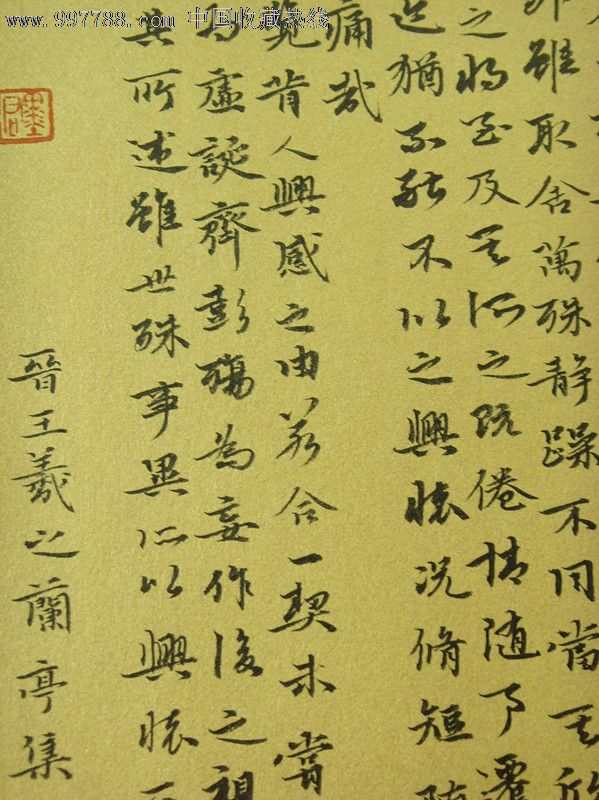 www.997788.com 中国收藏热线
外雖取舍萬殊靜躁不同當其欣
之將至及其所之既倦情随事遷
迹猶不能不以之興懷況脩短随
痛哉
覽昔人興感之由若合一契未嘗
為虛誕齊彭殤為妄作後之視
其所述雖世殊事異所以興懷其
晉王羲之蘭亭集